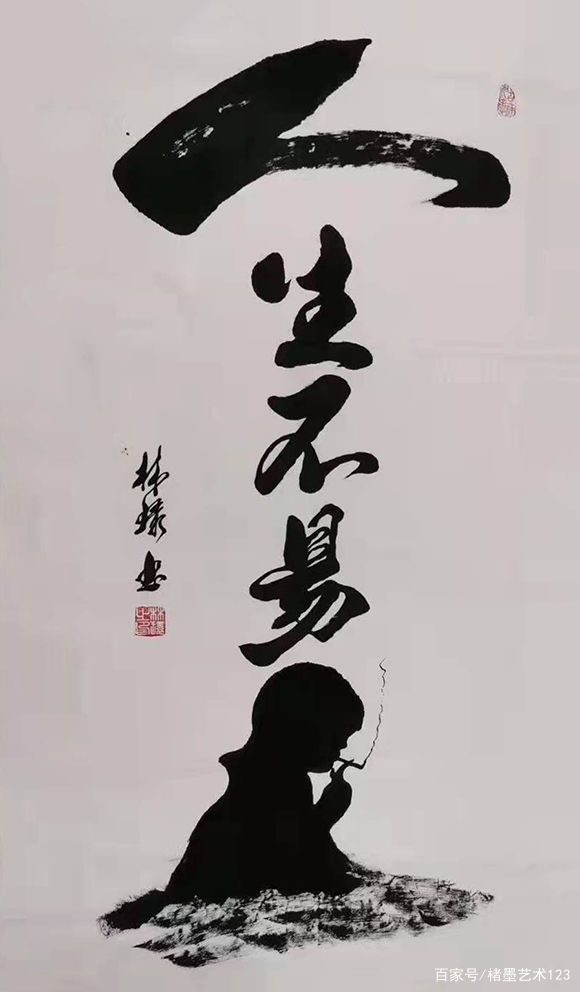 人生不易
林 书
百家号/楮墨艺术123